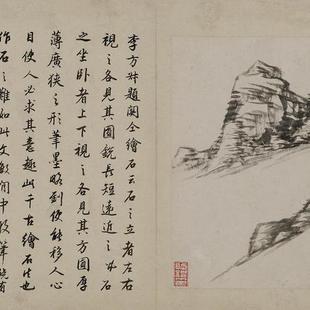 李方叔題關仝繪石云石之立者左右
視之各見其圓銳長短遠近之形石
之坐卧者上下視之各見其方圓厚
薄廣狹之形筆墨略到便能移人心
目使人必求其意趣此千古繪石法也
作石之難如此文敏閒中